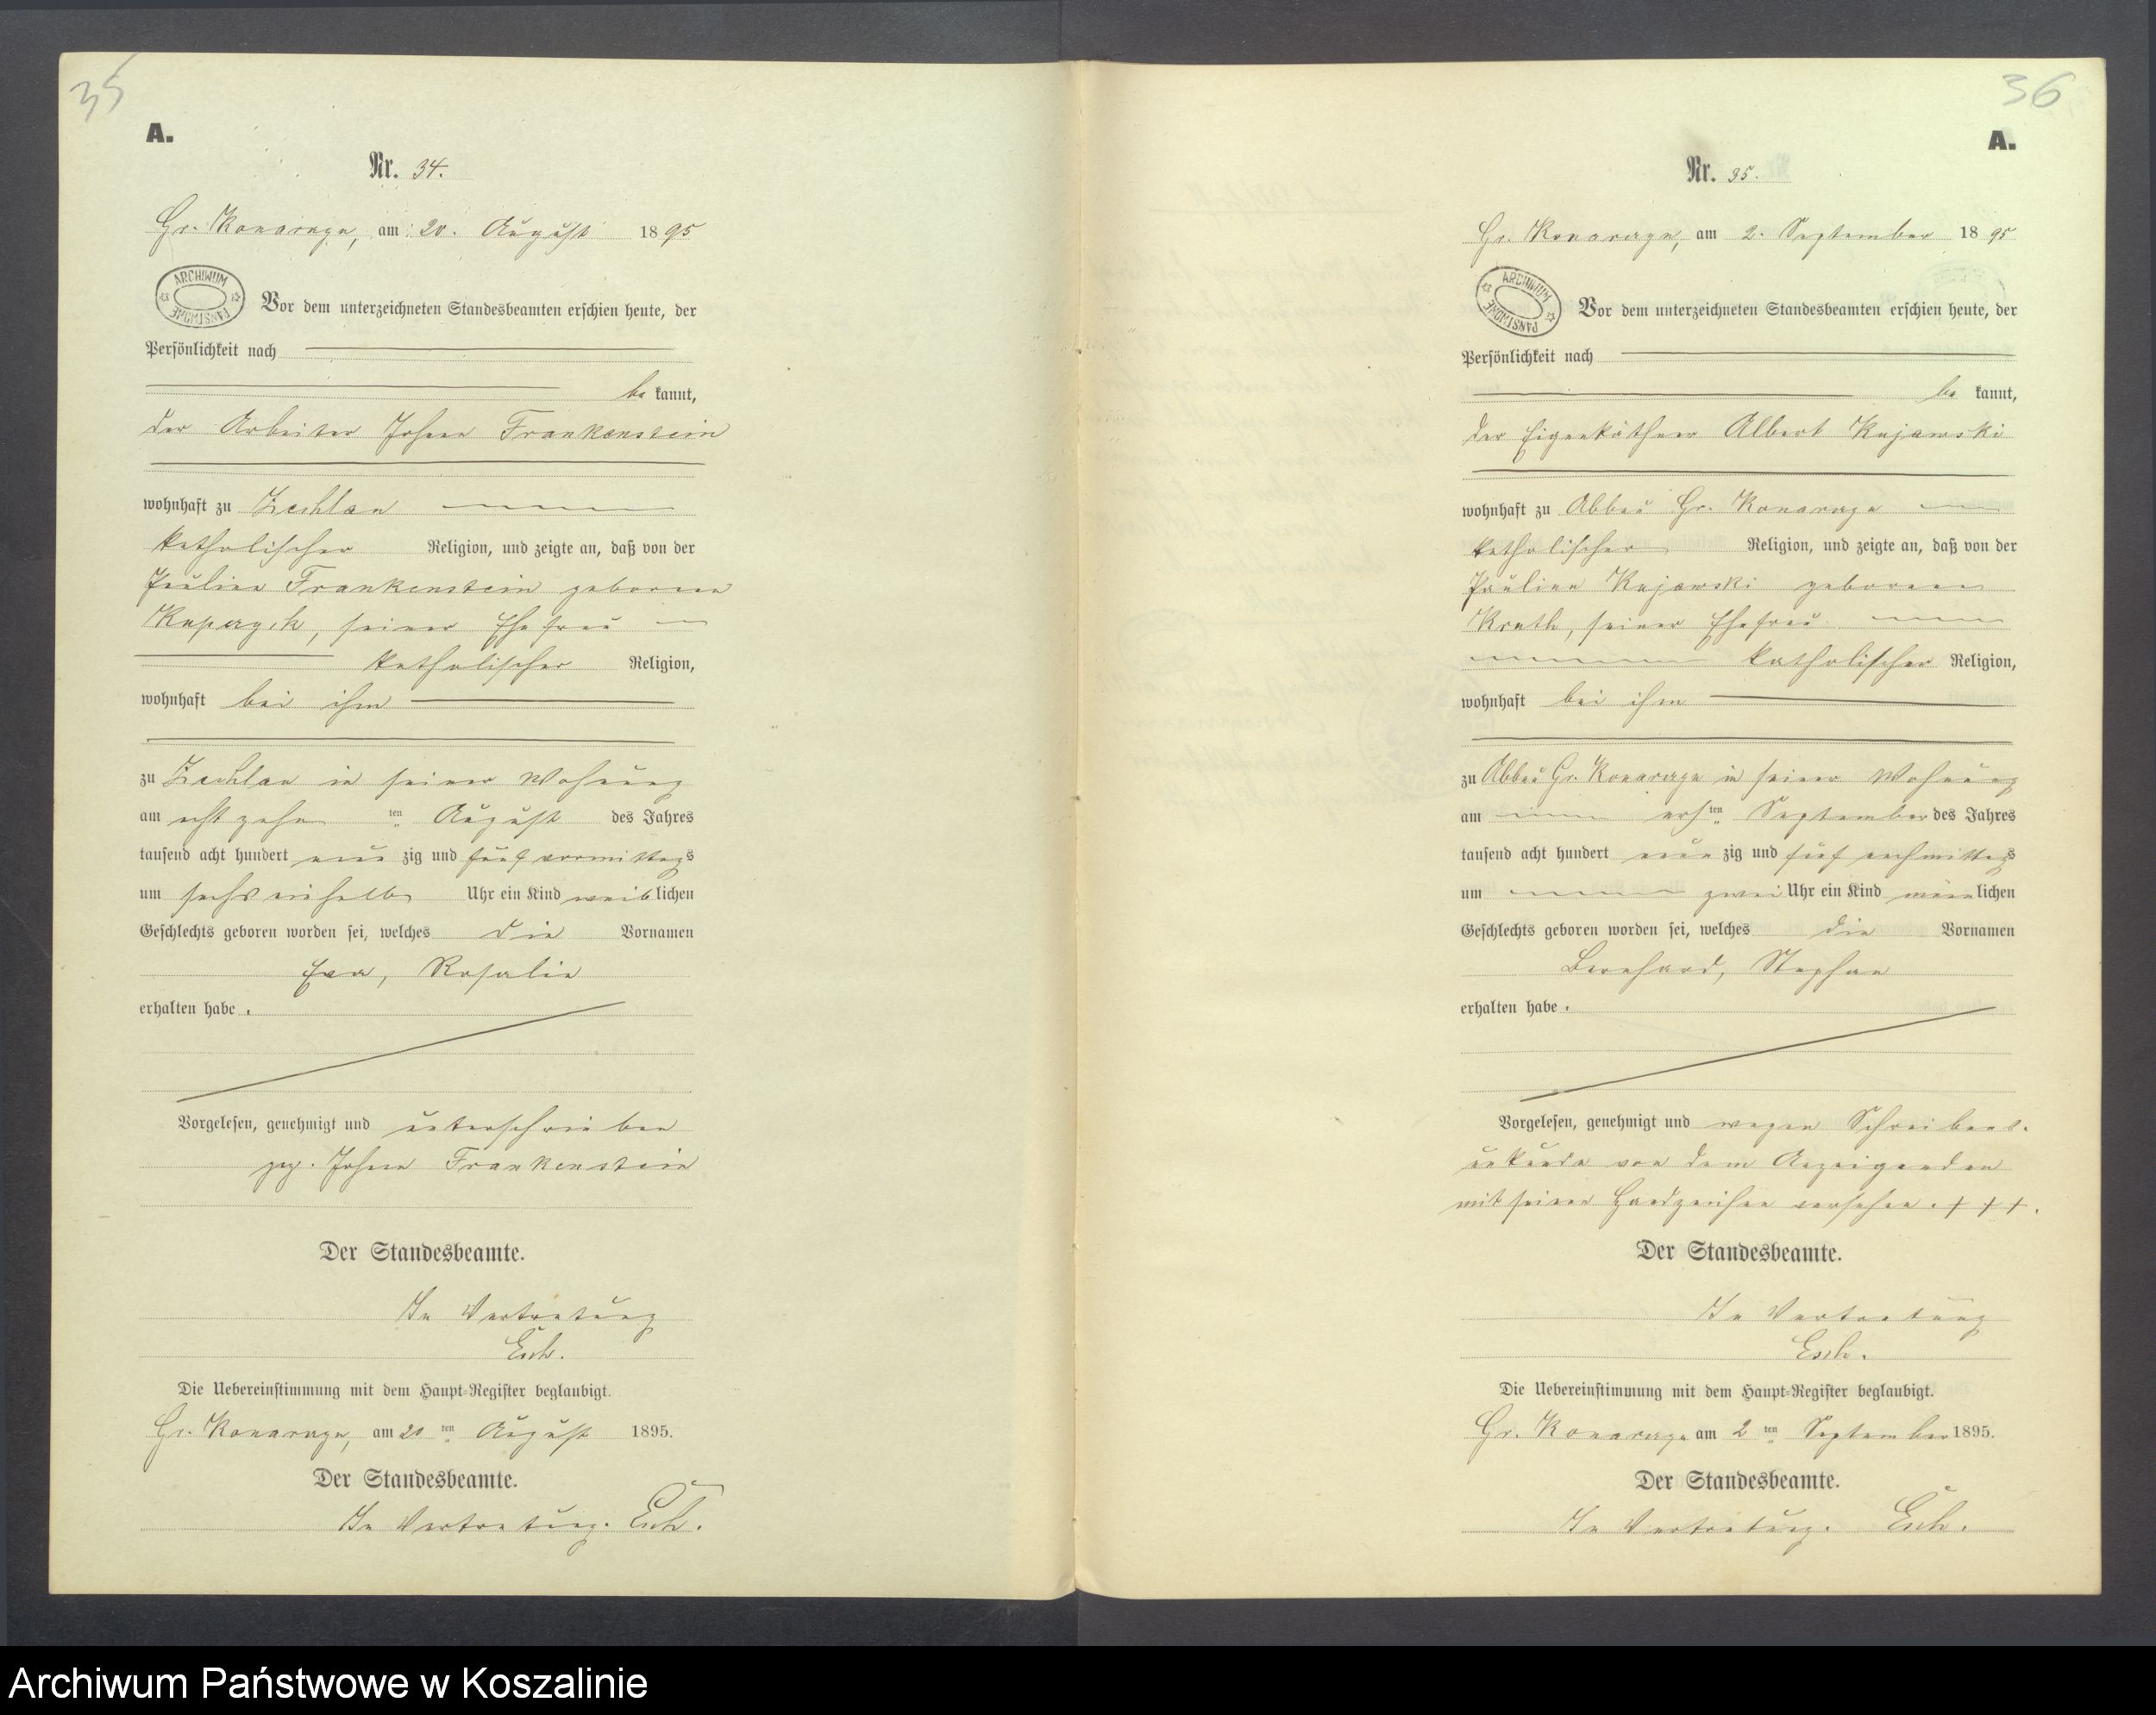 35
A.
Nr. 34.
Gr. Konarczyn, am 20. August 1895
ARCHIWUM PAŃSTWOWE
Vor dem unterzeichneten Standesbeamten erschien heute, der
Persönlichkeit nach
be kannt,
der Arbeiter Johann Frankenstein
wohnhaft zu Zechlau
katholischer Religion, und zeigte an, daß von der
Pauline Frankenstein geborenen
seiner Ehefrau
katholischer Religion,
wohnhaft bei ihm
zu Zechlau in seiner Wohnung
am achtzehn ten August des Jahres
tausend acht hundert neun zig und fünf vormittags
um sechs einhalb Uhr ein Kind weiblichen
Geschlechts geboren worden sei, welches die Vornamen
Eva, Rosalie
erhalten habe.
Vorgelesen, genehmigt und unterschrieben
gez. Johann Frankenstein
Der Standesbeamte.
In Vertretung
Esch.
Die Uebereinstimmung mit dem Haupt-Register beglaubigt.
Gr. Konarczyn, am 20 ten August 1895.
Der Standesbeamte.
In Vertretung. Esch.
36
A.
Nr. 35.
Gr. Konarczyn, am 2. September 1895
ARCHIWUM PAŃSTWOWE
Vor dem unterzeichneten Standesbeamten erschien heute, der
Persönlichkeit nach
be kannt,
der Eigenkäthner Albert Kujawski
wohnhaft zu Abbau Gr. Konarczyn
katholischer Religion, und zeigte an, daß von der
Pauline Kujawski geborenen
seiner Ehefrau
katholischer Religion,
wohnhaft bei ihm
zu Abbau Gr. Konarczyn in seiner Wohnung
am ersten September des Jahres
tausend acht hundert neun zig und fünf nachmittags
um zwei Uhr ein Kind männlichen
Geschlechts geboren worden sei, welches die Vornamen
Bernhard, Stephan
erhalten habe.
Vorgelesen, genehmigt und wegen Schreibens-
unkunde von dem Anzeigenden
mit seinem Handzeichen versehen. + + +.
Der Standesbeamte.
In Vertretung
Esch.
Die Uebereinstimmung mit dem Haupt-Register beglaubigt.
Gr. Konarczyn am 2 ten September 1895.
Der Standesbeamte.
In Vertretung. Esch.
Archiwum Państwowe w Koszalinie